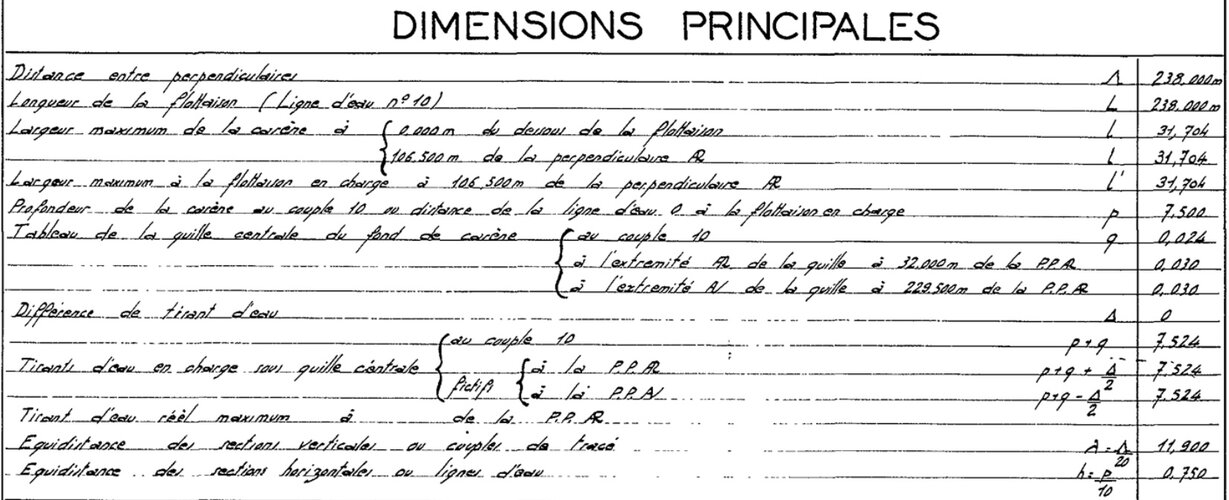 DIMENSIONS PRINCIPALES
Distance entre perpendiculaires Λ 238,000m
Longueur de la flottaison (Ligne d'eau n°10) L 238,000m
Largeur maximum de la carène à { 0,000m du dessous de la flottaison l 31,704
106,500m de la perpendiculaire AR l 31,704
Largeur maximum à la flottaison en charge à 106,500m de la perpendiculaire AR l' 31,704
Profondeur de la carène au couple 10 ou distance de la ligne d'eau 0 à la flottaison en charge p 7.500
Tableau de la quille centrale du fond de carène { au couple 10 q 0,024
à l'extremité AR de la quille à 32.000m de la P.P. AR 0,030
à l'extremité AV de la quille à 229.500m de la P.P. AR 0,030
Différence de tirant d'eau Δ 0
au couple 10 p+q 7.524
Tirants d'eau en charge sous quille céntrale { fictifs { à la P.P. AR p+q+Δ/2 7.524
à la P.P. AV p+q-Δ/2 7.524
Tirant d'eau réèl maximum à de la P.P. AR
Equidistance des sections verticales ou couples de tracé λ=Λ/20 11,900
Equidistance des sections horizontales ou lignes d'eau h=p/10 0,750